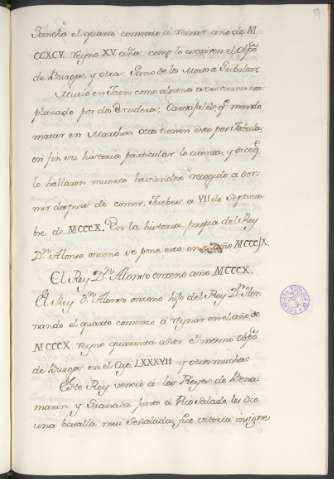 Sancho el quarto comenzo á reinar año de M
CCXCV. reyno XV. años, como lo escribe en el Obpo
de Burgos, y otra Suma de las Mesma
Murio en Jaen como algunos
plazado por dos que mando
matar en Martos otros tienen esto por fabula
en fin en su historia particular lo cuenta, y dice q.
lo hallaron muerto haviendose recogido a dor-
mir despues de comer, Jueves a VII de Septiem
bre de MCCCX. En la historia propia del Rey
Dn. Alonso onceno se pone esto en año MCCCIX
El Rey Dn. Alonso onceno año MCCCX.
El Rey Dn. Alonso onceno hijo del Rey Dn. Fer-
nando el quarto comenzo á reynar en el año de
MCCCX. reyno quarenta años el mesmo Obpo
de Burgos en el Cap. LXXXVII y otros muchos
Este Rey vencio á los Reyes de Bena
marin, y Granada junto á Rio Salado, les dio
una batalla mui señalada, fue vitoria insigne